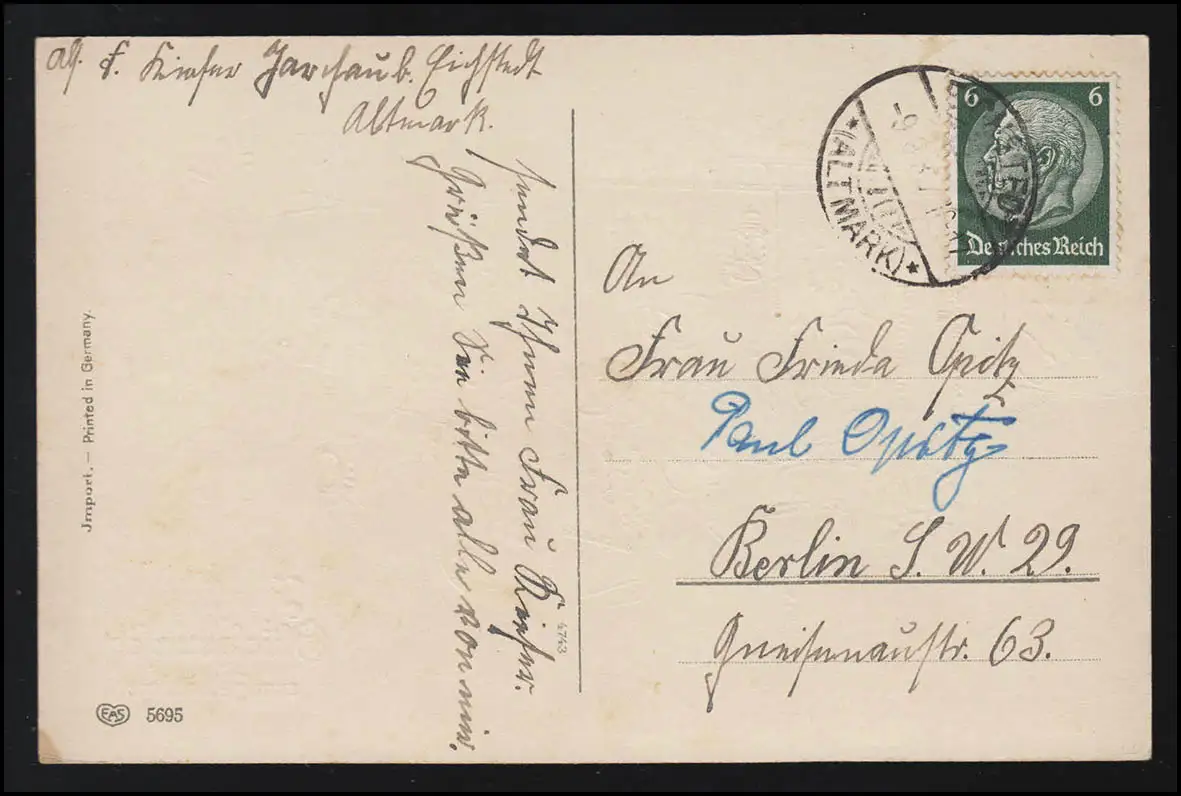 F. Kiefer Jarchau b. Eichstedt
Altmark.
sendet Ihnen Frau Kiefer.
Grüßen Sie bitte alle von mir.
An
Frau Frieda Opitz
Paul Opitz
Berlin S. W. 29.
Gneisenaustr. 63.
6 6
Deutsches Reich
(ALTMARK)
Import. – Printed in Germany.
4743
EAS 5695